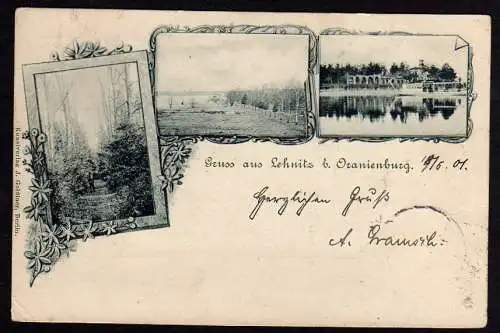 Gruss aus Lehnitz b. Oranienburg. 8/6. 01.
Herzlichen Gruß
A.
Kunstverlag J. Goldiner, Berlin.